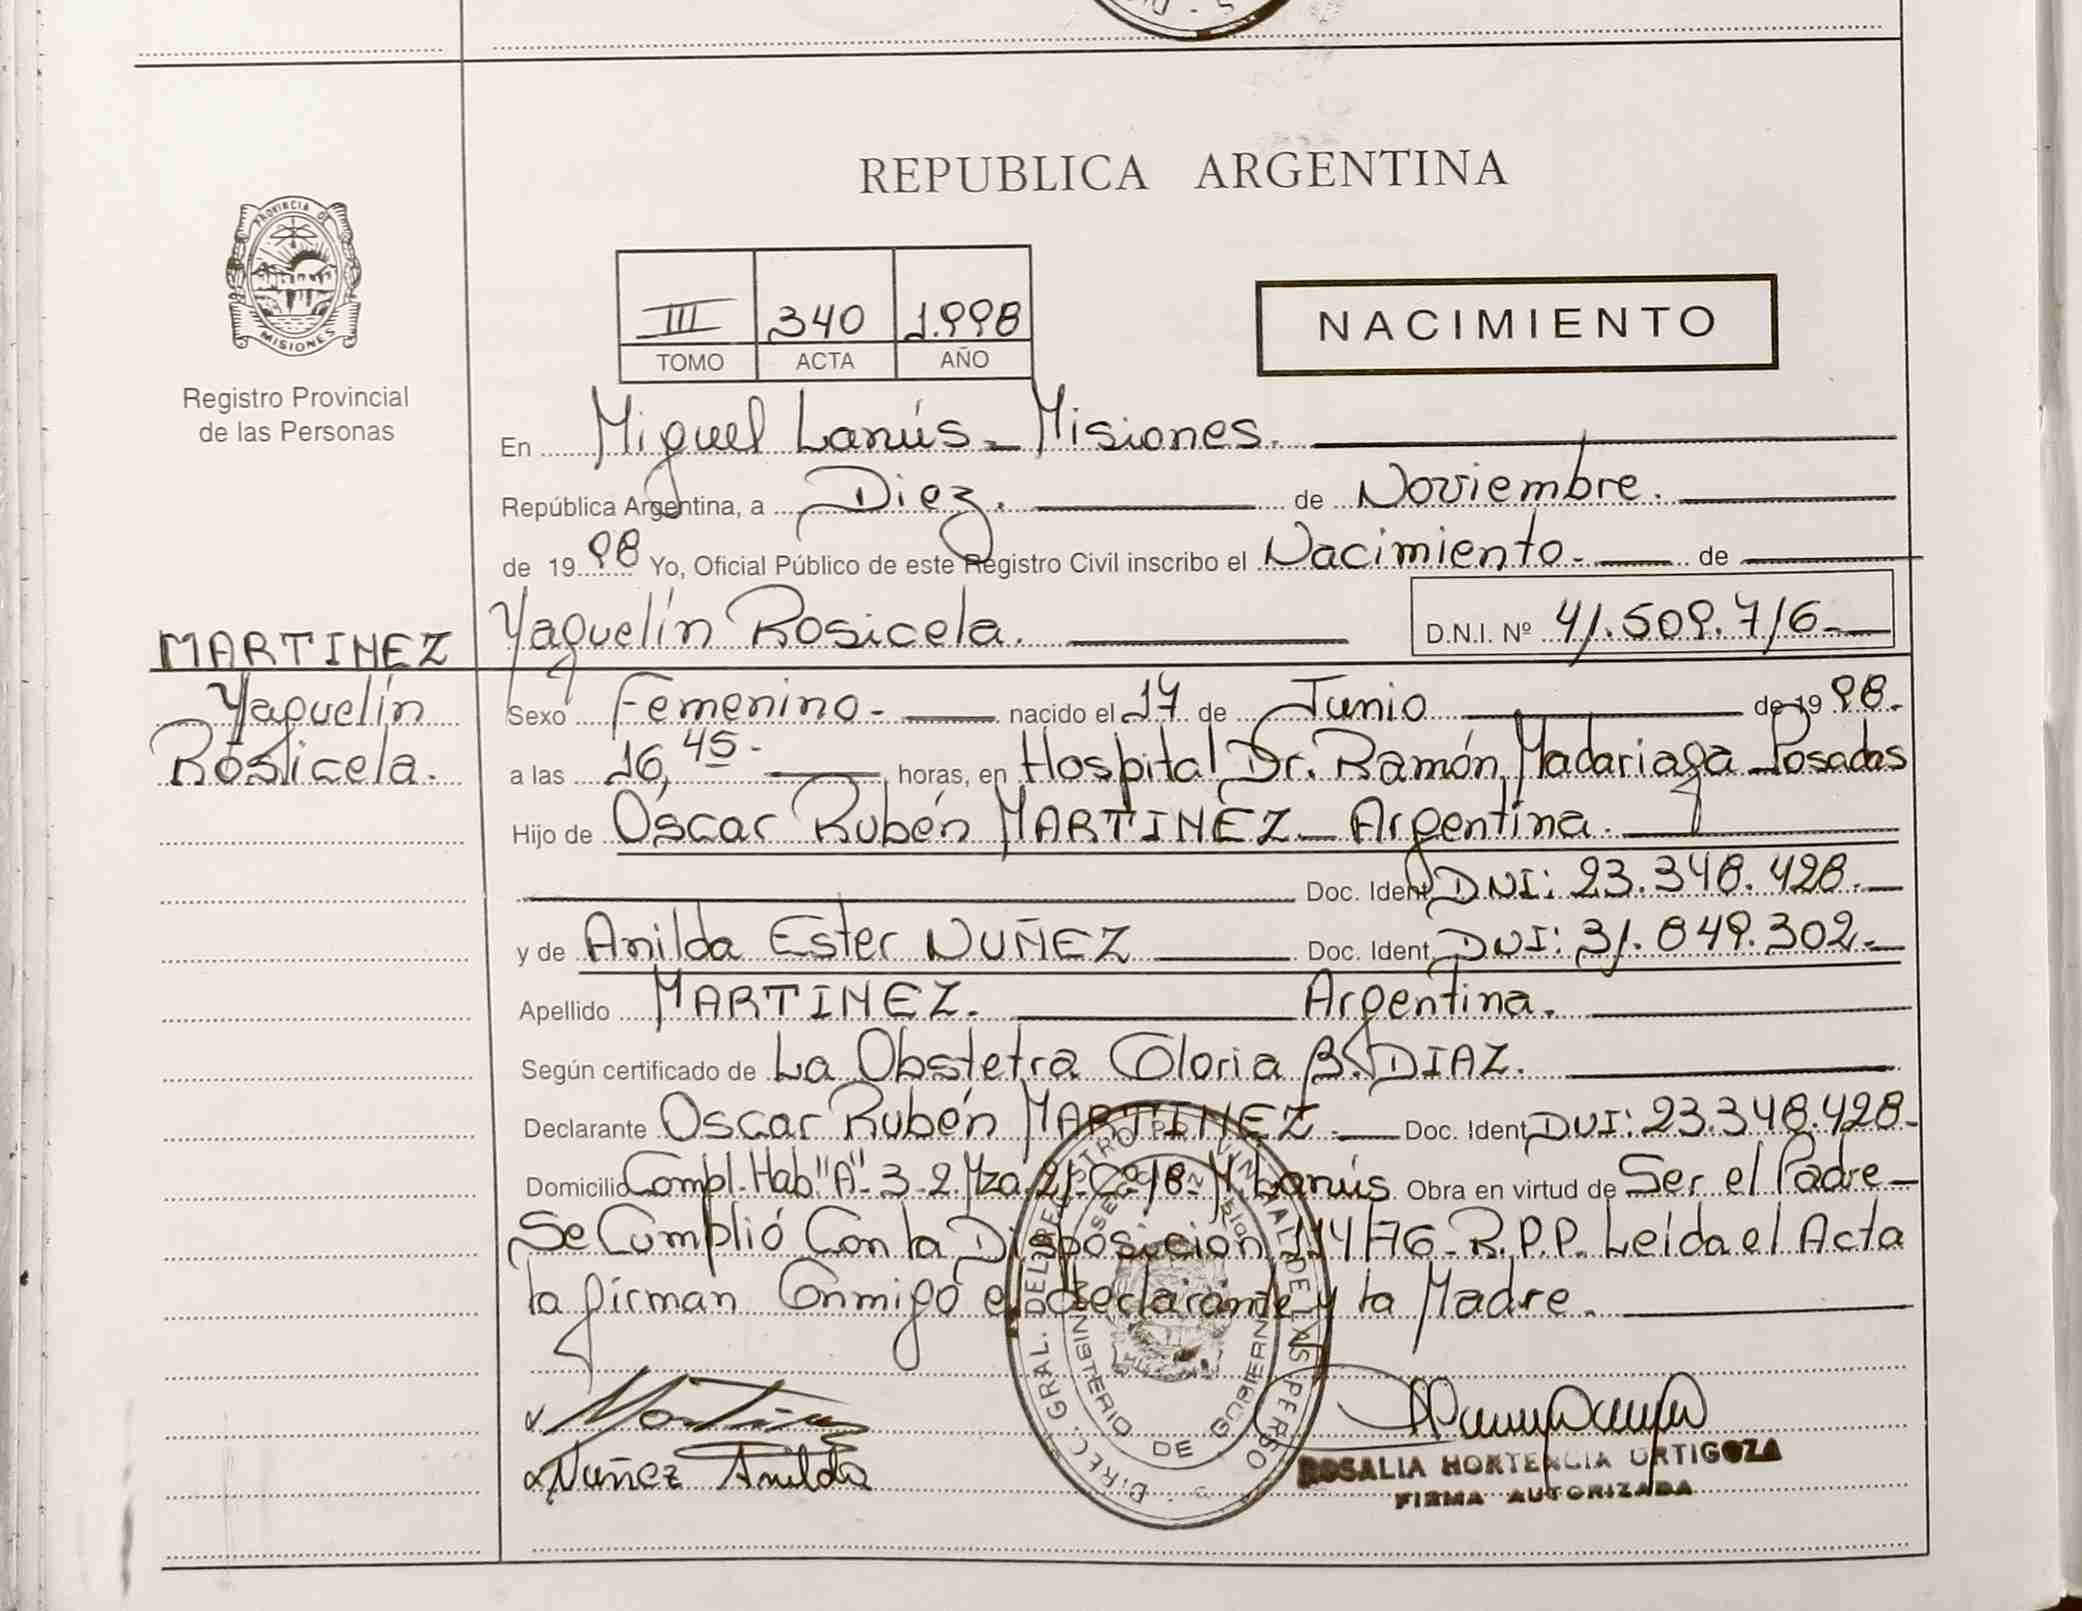 REPUBLICA ARGENTINA
PROVINCIA DE
MISIONES
Registro Provincial
de las Personas
III 340 1.998
TOMO ACTA AÑO
NACIMIENTO
En Miguel Lanús - Misiones.
República Argentina, a Diez. de Noviembre.
de 1998 Yo, Oficial Público de este Registro Civil inscribo el Nacimiento - de
Yaquelín Rosicela. D.N.I. Nº 41.509.716-
MARTINEZ
Yaquelín
Rosicela.
Sexo Femenino - nacido el 17 de Junio de 1998.
a las 16,45- horas, en Hospital Dr. Ramón Madariaga Posadas
Hijo de Oscar Rubén MARTINEZ - Argentina.
Doc. Ident DNI: 23.348.428.-
y de Anilda Ester NUÑEZ Doc. Ident. DNI: 31.849.302.-
Apellido MARTINEZ. Argentina.
Según certificado de La Obstetra Gloria B. DIAZ.
Declarante Oscar Rubén MARTINEZ.- Doc. Ident DNI: 23.348.428-
Domicilio Compl. Hab "A" 3-2 Mza. 21-Cº 18- M. Lanús Obra en virtud de Ser el Padre-
Se Cumplió Con la Disposición 114/76-R.P.P. Leída el Acta
la firman Conmigo el declarante y la Madre.
DIREC. GRAL. DEL REGISTRO PROVINCIAL DE LAS PERSO
MINISTERIO DE GOBIERN
Nuñez Anilda
ROSALIA HORTENCIA ORTIGOZA
FIRMA AUTORIZADA